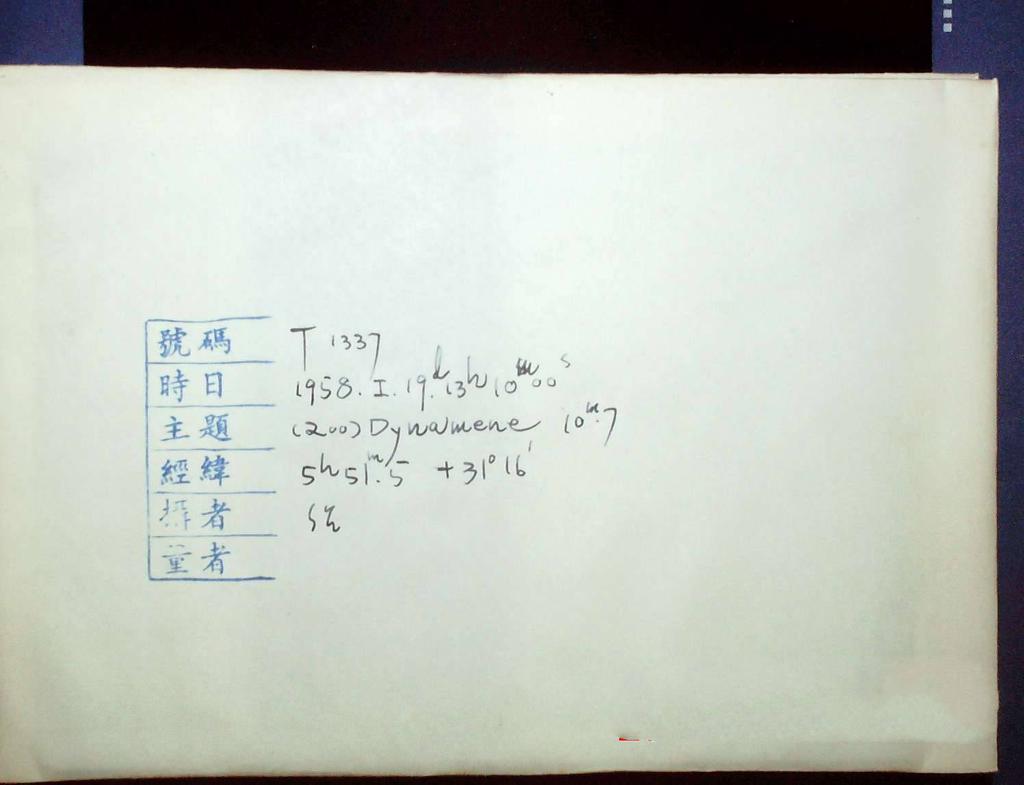 號碼 T 1337
時日 1958. I. 19.ᵈ13ʰ10ᵐ00ˢ
主題 (200) Dynamene 10ᵐ.7
經緯 5ʰ51ᵐ.5 +31°16′
攝者
量者